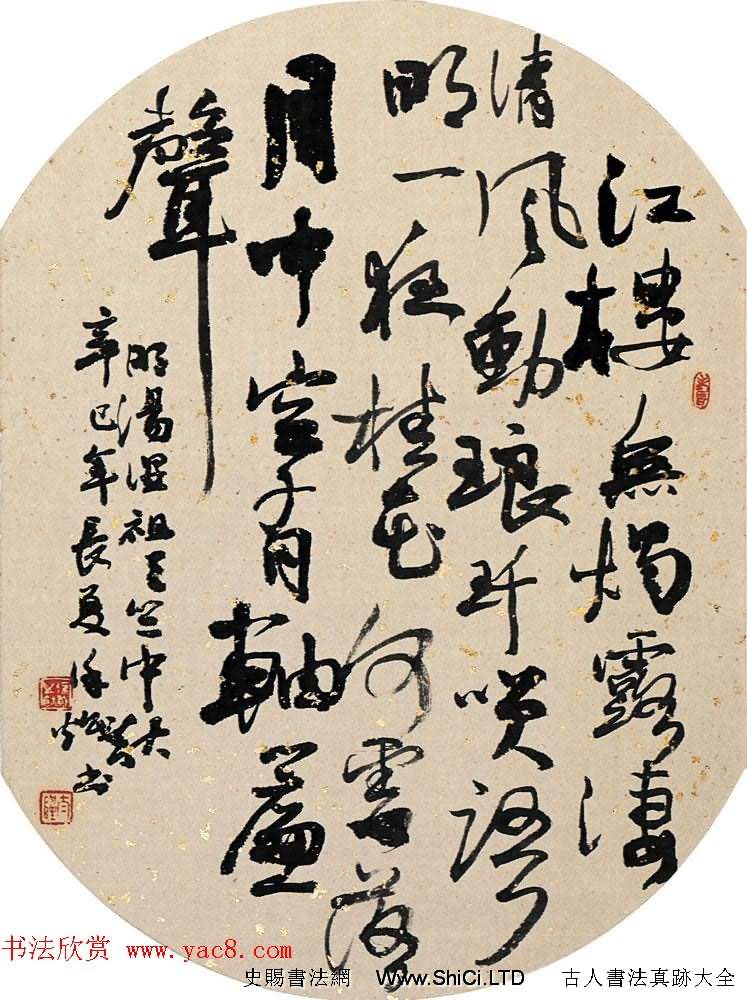 江樓無燭露淒
清風動琅玕笑語
明一夜桂花何處落
月中空有軸簾
聲
明湯顯祖天竺中秋
辛巳年長夏 書
书法欣赏 www.yac8.com
史賜書法網 Www.ShiCi.LTD 古人書法真跡大全